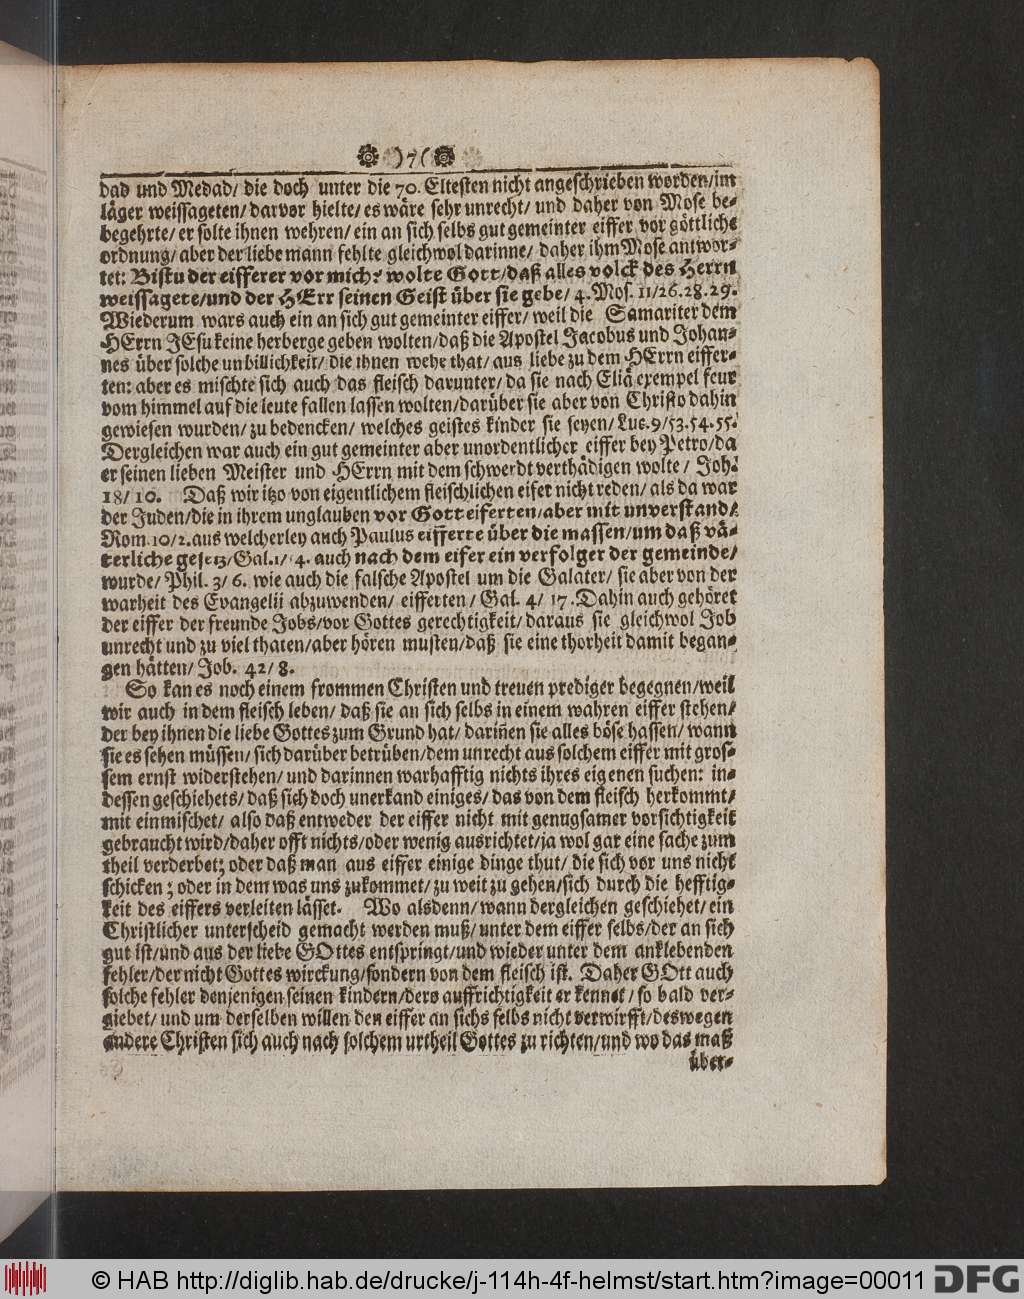 )7(
dad und Medad/ die doch unter die 70. Eltesten nicht angeschrieben worden/im
läger weissageten/ darvor hielte/ es wäre sehr unrecht/ und daher von Mose be-
begehrte/ er solte ihnen wehren/ ein an sich selbs gut gemeinter eiffer vor göttliche
ordnung/ aber der liebe mann fehlte gleichwol darinne/ daher ihm Mose antwor-
tet: Bistu der eifferer vor mich? wolte Gott/daß alles volck des Herrn
weissagete/und der HErr seinen Geist über sie gebe/ 4. Mos. 11/26.28.29.
Wiederum wars auch ein an sich gut gemeinter eiffer/ weil die Samariter dem
HErrn JEsu keine herberge geben wolten/daß die Apostel Jacobus und Johan-
nes über solche unbillichkeit/ die ihnen wehe that/ aus liebe zu dem HErrn eiffer-
ten: aber es mischte sich auch das fleisch darunter/ da sie nach Eliä exempel feur
vom himmel auf die leute fallen lassen wolten/darüber sie aber von Christo dahin
gewiesen wurden/ zu bedencken/ welches geistes kinder sie seyen/ Luc. 9/53.54.55.
Dergleichen war auch ein gut gemeinter aber unordentlicher eiffer bey Petro/da
er seinen lieben Meister und HErrn mit dem schwerdt verthädigen wolte / Joh.
18/ 10. Daß wir itzo von eigentlichem fleischlichen eifer nicht reden/ als da war
der Juden/die in ihrem unglauben vor Gott eiferten/aber mit unverstand/
Rom. 10/2. aus welcherley auch Paulus eifferte über die massen/um daß vä-
terliche gesetz/Gal.1/14. auch nach dem eifer ein verfolger der gemeinde/
wurde/ Phil. 3/ 6. wie auch die falsche Apostel um die Galater/ sie aber von der
warheit des Evangelii abzuwenden/ eifferten / Gal. 4/ 17. Dahin auch gehöret
der eiffer der freunde Jobs/vor Gottes gerechtigkeit/ daraus sie gleichwol Job
unrecht und zu viel thaten/aber hören musten/daß sie eine thorheit damit began-
gen hätten/ Job. 42/ 8.
So kan es noch einem frommen Christen und treuen prediger begegnen/weil
wir auch in dem fleisch leben/ daß sie an sich selbs in einem wahren eiffer stehen/
der bey ihnen die liebe Gottes zum Grund hat/ dariñen sie alles böse hassen/ wann
sie es sehen müssen/ sich darüber betrüben/ dem unrecht aus solchem eiffer mit gros-
sem ernst widerstehen/ und darinnen warhafftig nichts ihres eigenen suchen: in-
dessen geschiehets/ daß sich doch unerkand einiges/ das von dem fleisch herkommt/
mit einmischet/ also daß entweder der eiffer nicht mit genugsamer vorsichtigkeit
gebraucht wird/daher offt nichts/oder wenig ausrichtet/ja wol gar eine sache zum
theil verderbet; oder daß man aus eiffer einige dinge thut/ die sich vor uns nicht
schicken; oder in dem was uns zukommet/ zu weit zu gehen/sich durch die hefftig-
keit des eiffers verleiten lässet. Wo alsdenn/ wann dergleichen geschiehet/ ein
Christlicher unterscheid gemacht werden muß/ unter dem eiffer selbs/der an sich
gut ist/und aus der liebe GOttes entspringt/und wieder unter dem anklebenden
fehler/der nicht Gottes wirckung/sondern von dem fleisch ist. Daher GOtt auch
solche fehler denjenigen seinen kindern/dero auffrichtigkeit er kennet/ so bald ver-
giebet/ und um derselben willen den eiffer an sichs selbs nicht verwirfft/deswegen
andere Christen sich auch nach solchem urtheil Gottes zu richten/und wo das maß
über-
© HAB http://diglib.hab.de/drucke/j-114h-4f-helmst/start.htm?image=00011
DFG